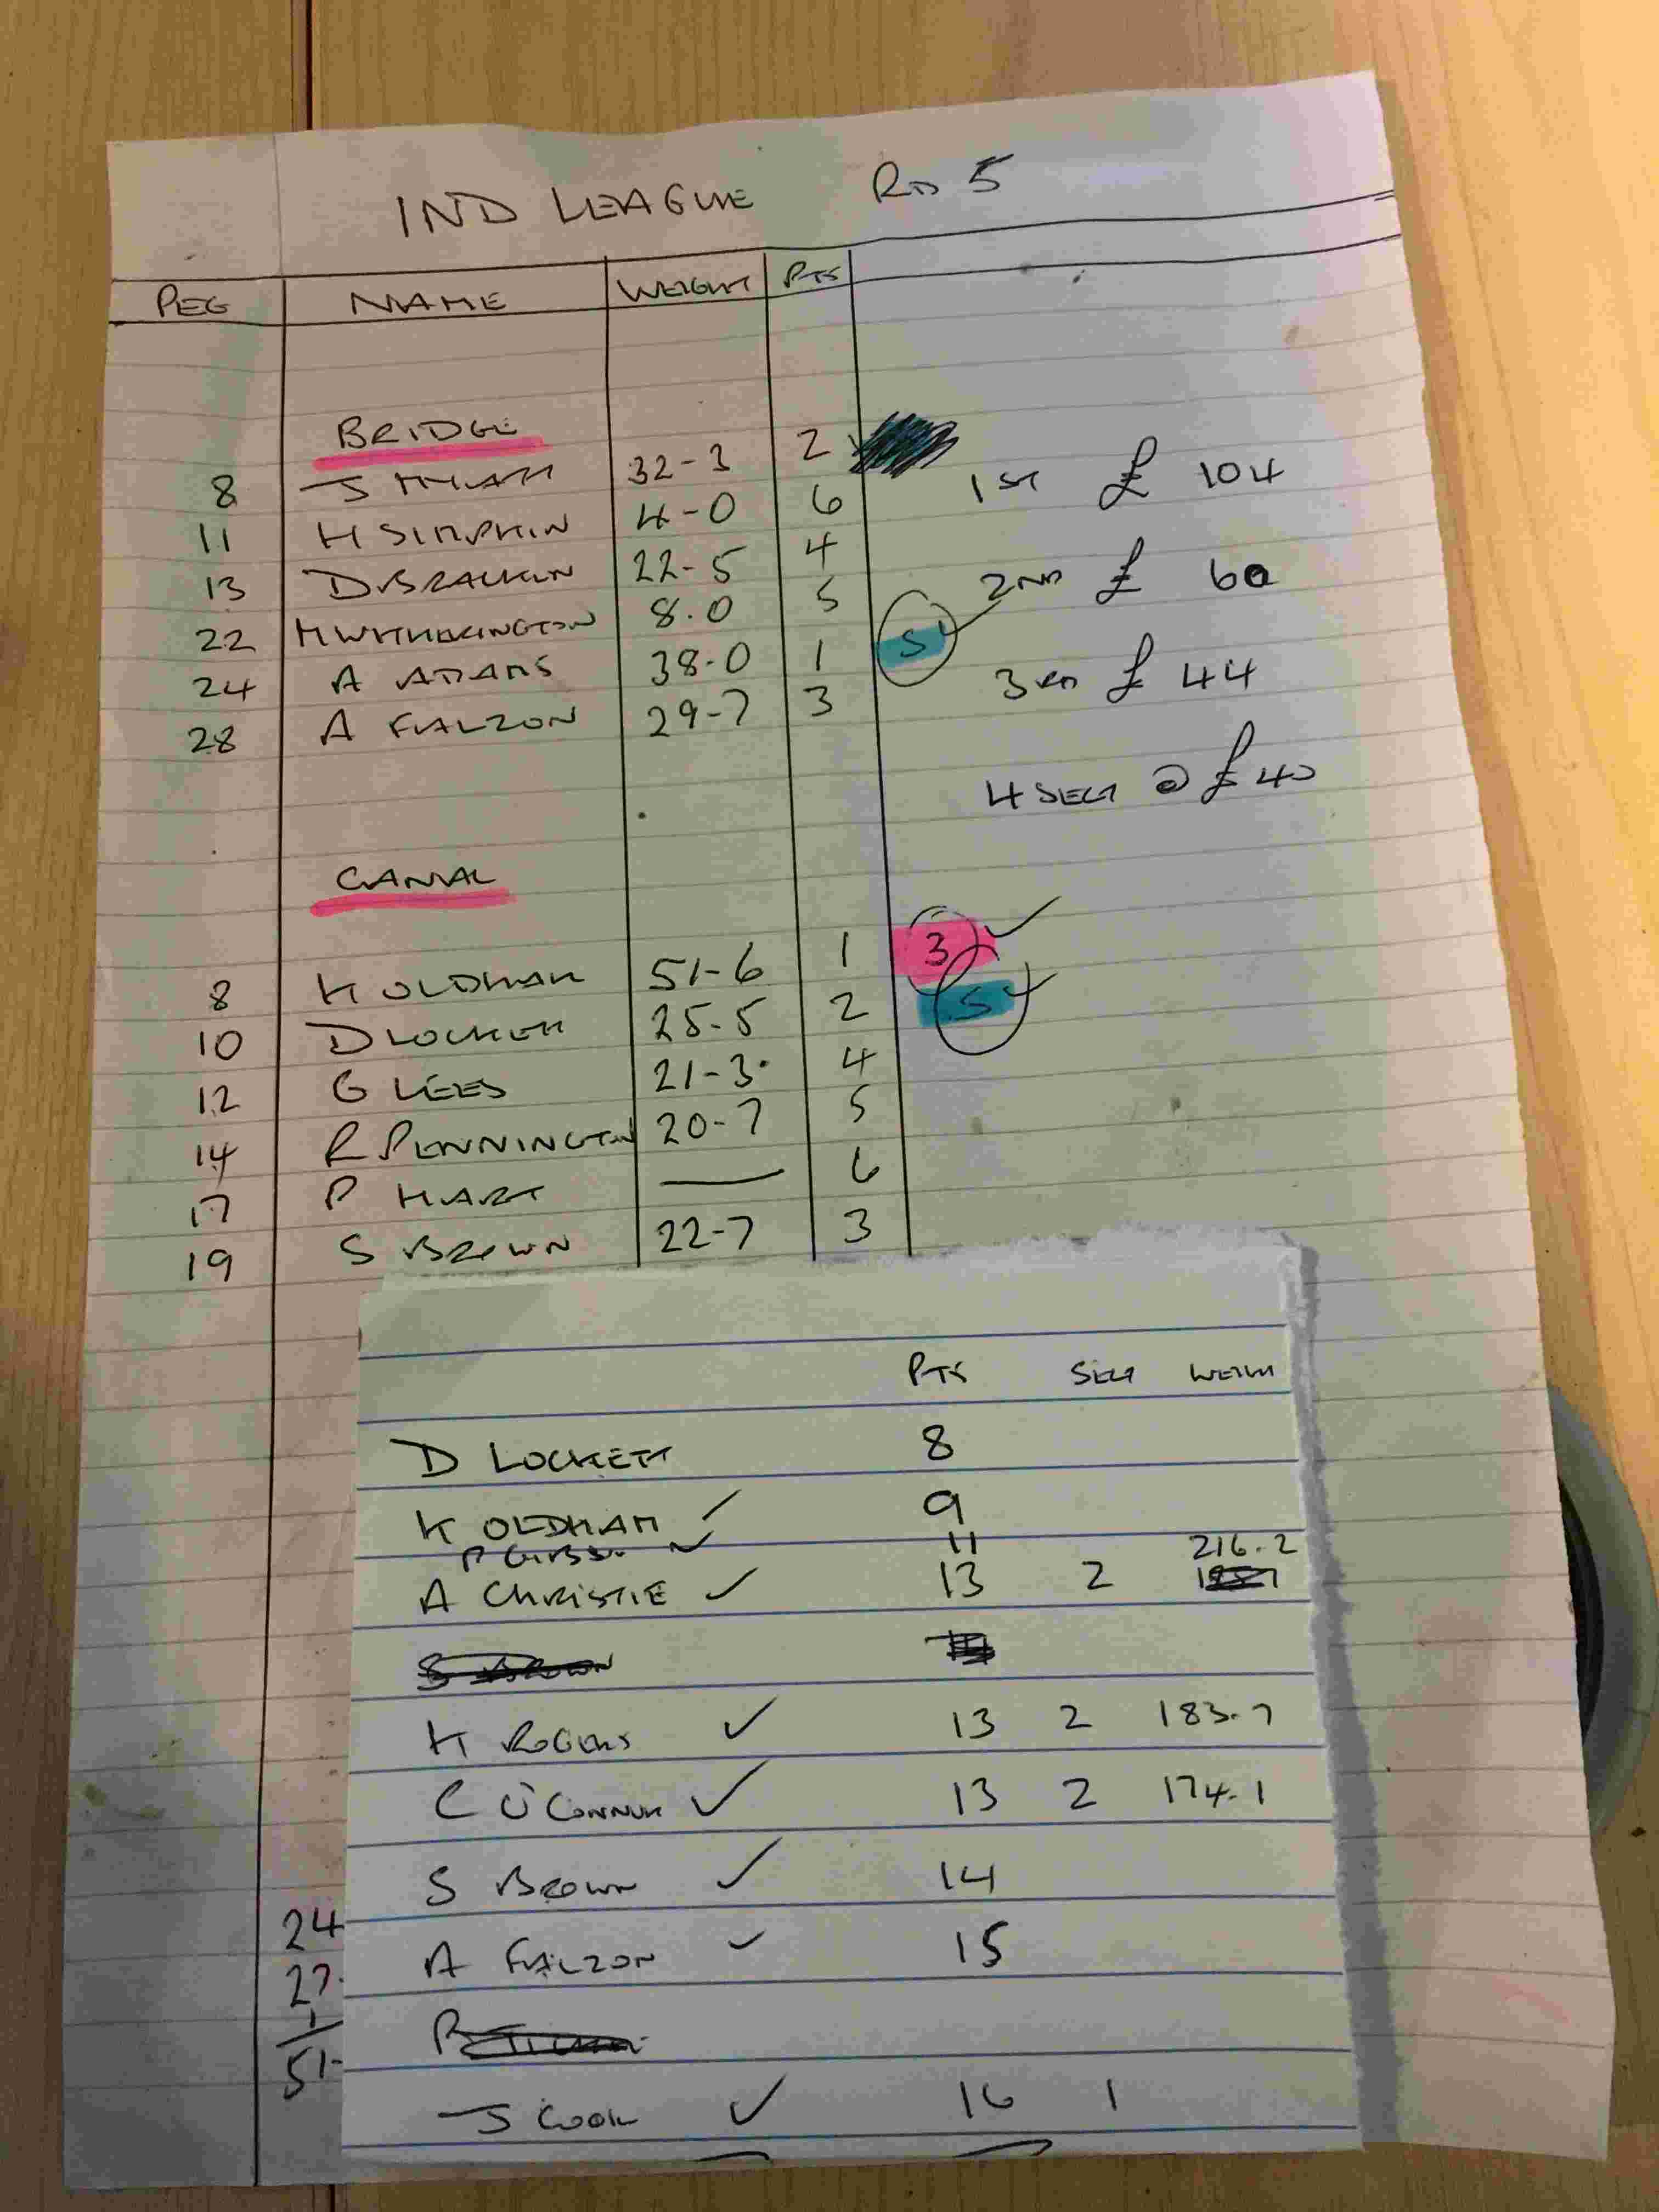 IND LEAGUE RD 5
PEG NAME WEIGHT PTS
BRIDGE
8 J 32-3 2
1ST £ 104
11 H SIMPKIN 4-0 6
13 D BRACKEN 22-5 4
2ND £ 60
22 M WITHERINGTON 8.0 5
24 A ADAMS 38-0 1 S
3RD £ 44
28 A FALZON 29-7 3
4 SECT @ £40
CANAL
8 K OLDHAM 51-6 1 3
10 D LOCKETT 25-5 2 S
12 G LEES 21-3 4
14 R PENNINGTON 20-7 5
17 P HART — 6
19 S BROWN 22-7 3
PTS SECT WEIGHT
D LOCKETT 8
K OLDHAM ✓ 9
P GIBSON ✓ 11
216-2
A CHRISTIE ✓ 13 2
S BROWN
K ROGERS ✓ 13 2 183-7
C O'CONNOR ✓ 13 2 174-1
S BROWN ✓ 14
A FALZON ✓ 15
J COOK ✓ 16 1
24
27
1
51-